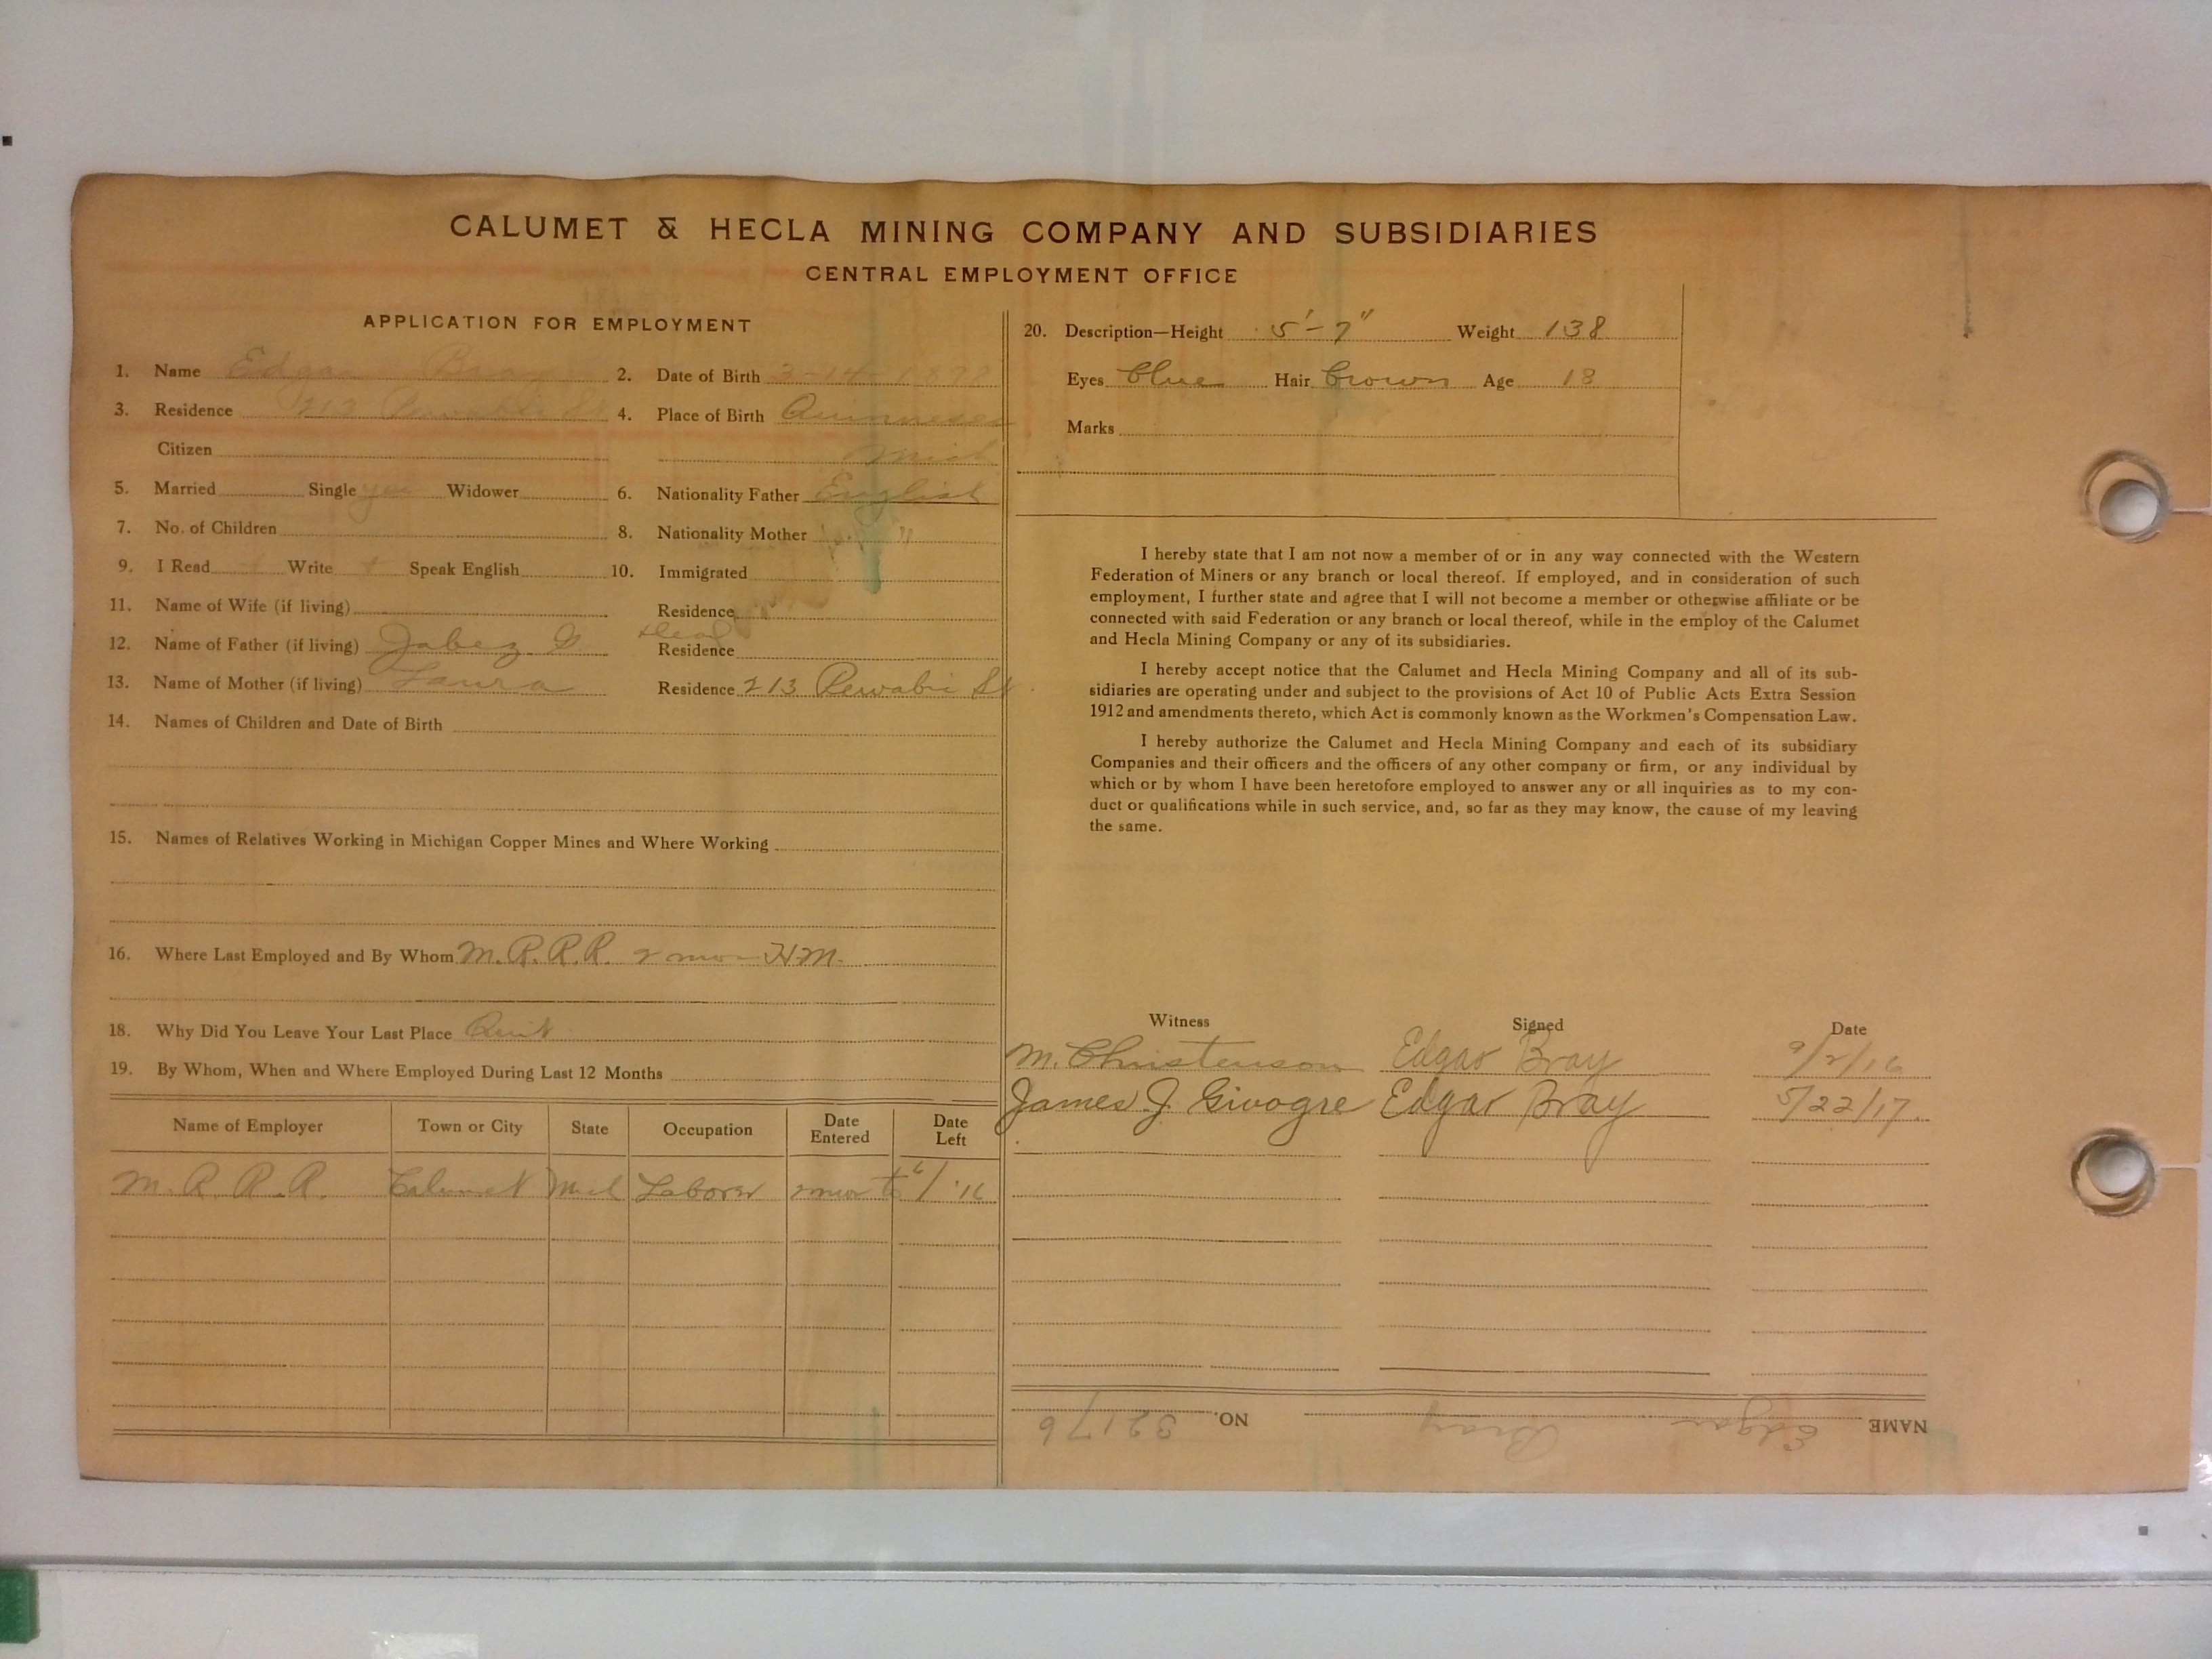 CALUMET & HECLA MINING COMPANY AND SUBSIDIARIES
CENTRAL EMPLOYMENT OFFICE
APPLICATION FOR EMPLOYMENT
1. Name Edgar Bray 2. Date of Birth 3-14-1898
3. Residence 213 Pewabic St 4. Place of Birth Quinnesec
Citizen Mich
5. Married Single yes Widower 6. Nationality Father English
7. No. of Children 8. Nationality Mother "
9. I Read Write Speak English 10. Immigrated
11. Name of Wife (if living) Residence
12. Name of Father (if living) Jabez G dead Residence
13. Name of Mother (if living) Laura Residence 213 Pewabic St
14. Names of Children and Date of Birth
15. Names of Relatives Working in Michigan Copper Mines and Where Working
16. Where Last Employed and By Whom M.R.R.R. 2 mos H.M.
18. Why Did You Leave Your Last Place Quit
19. By Whom, When and Where Employed During Last 12 Months
Name of Employer Town or City State Occupation Date Entered Date Left
M. R. R. R. Calumet Mich Laborer 2 mos to 6/'16
20. Description—Height 5'-7" Weight 138
Eyes blue Hair brown Age 18
Marks
I hereby state that I am not now a member of or in any way connected with the Western
Federation of Miners or any branch or local thereof. If employed, and in consideration of such
employment, I further state and agree that I will not become a member or otherwise affiliate or be
connected with said Federation or any branch or local thereof, while in the employ of the Calumet
and Hecla Mining Company or any of its subsidiaries.
I hereby accept notice that the Calumet and Hecla Mining Company and all of its sub-
sidiaries are operating under and subject to the provisions of Act 10 of Public Acts Extra Session
1912 and amendments thereto, which Act is commonly known as the Workmen's Compensation Law.
I hereby authorize the Calumet and Hecla Mining Company and each of its subsidiary
Companies and their officers and the officers of any other company or firm, or any individual by
which or by whom I have been heretofore employed to answer any or all inquiries as to my con-
duct or qualifications while in such service, and, so far as they may know, the cause of my leaving
the same.
Witness Signed Date
M. Christenson Edgar Bray 9/2/16
James J. Givogre Edgar Bray 5/22/17.
NAME Edgar Bray NO. 32176